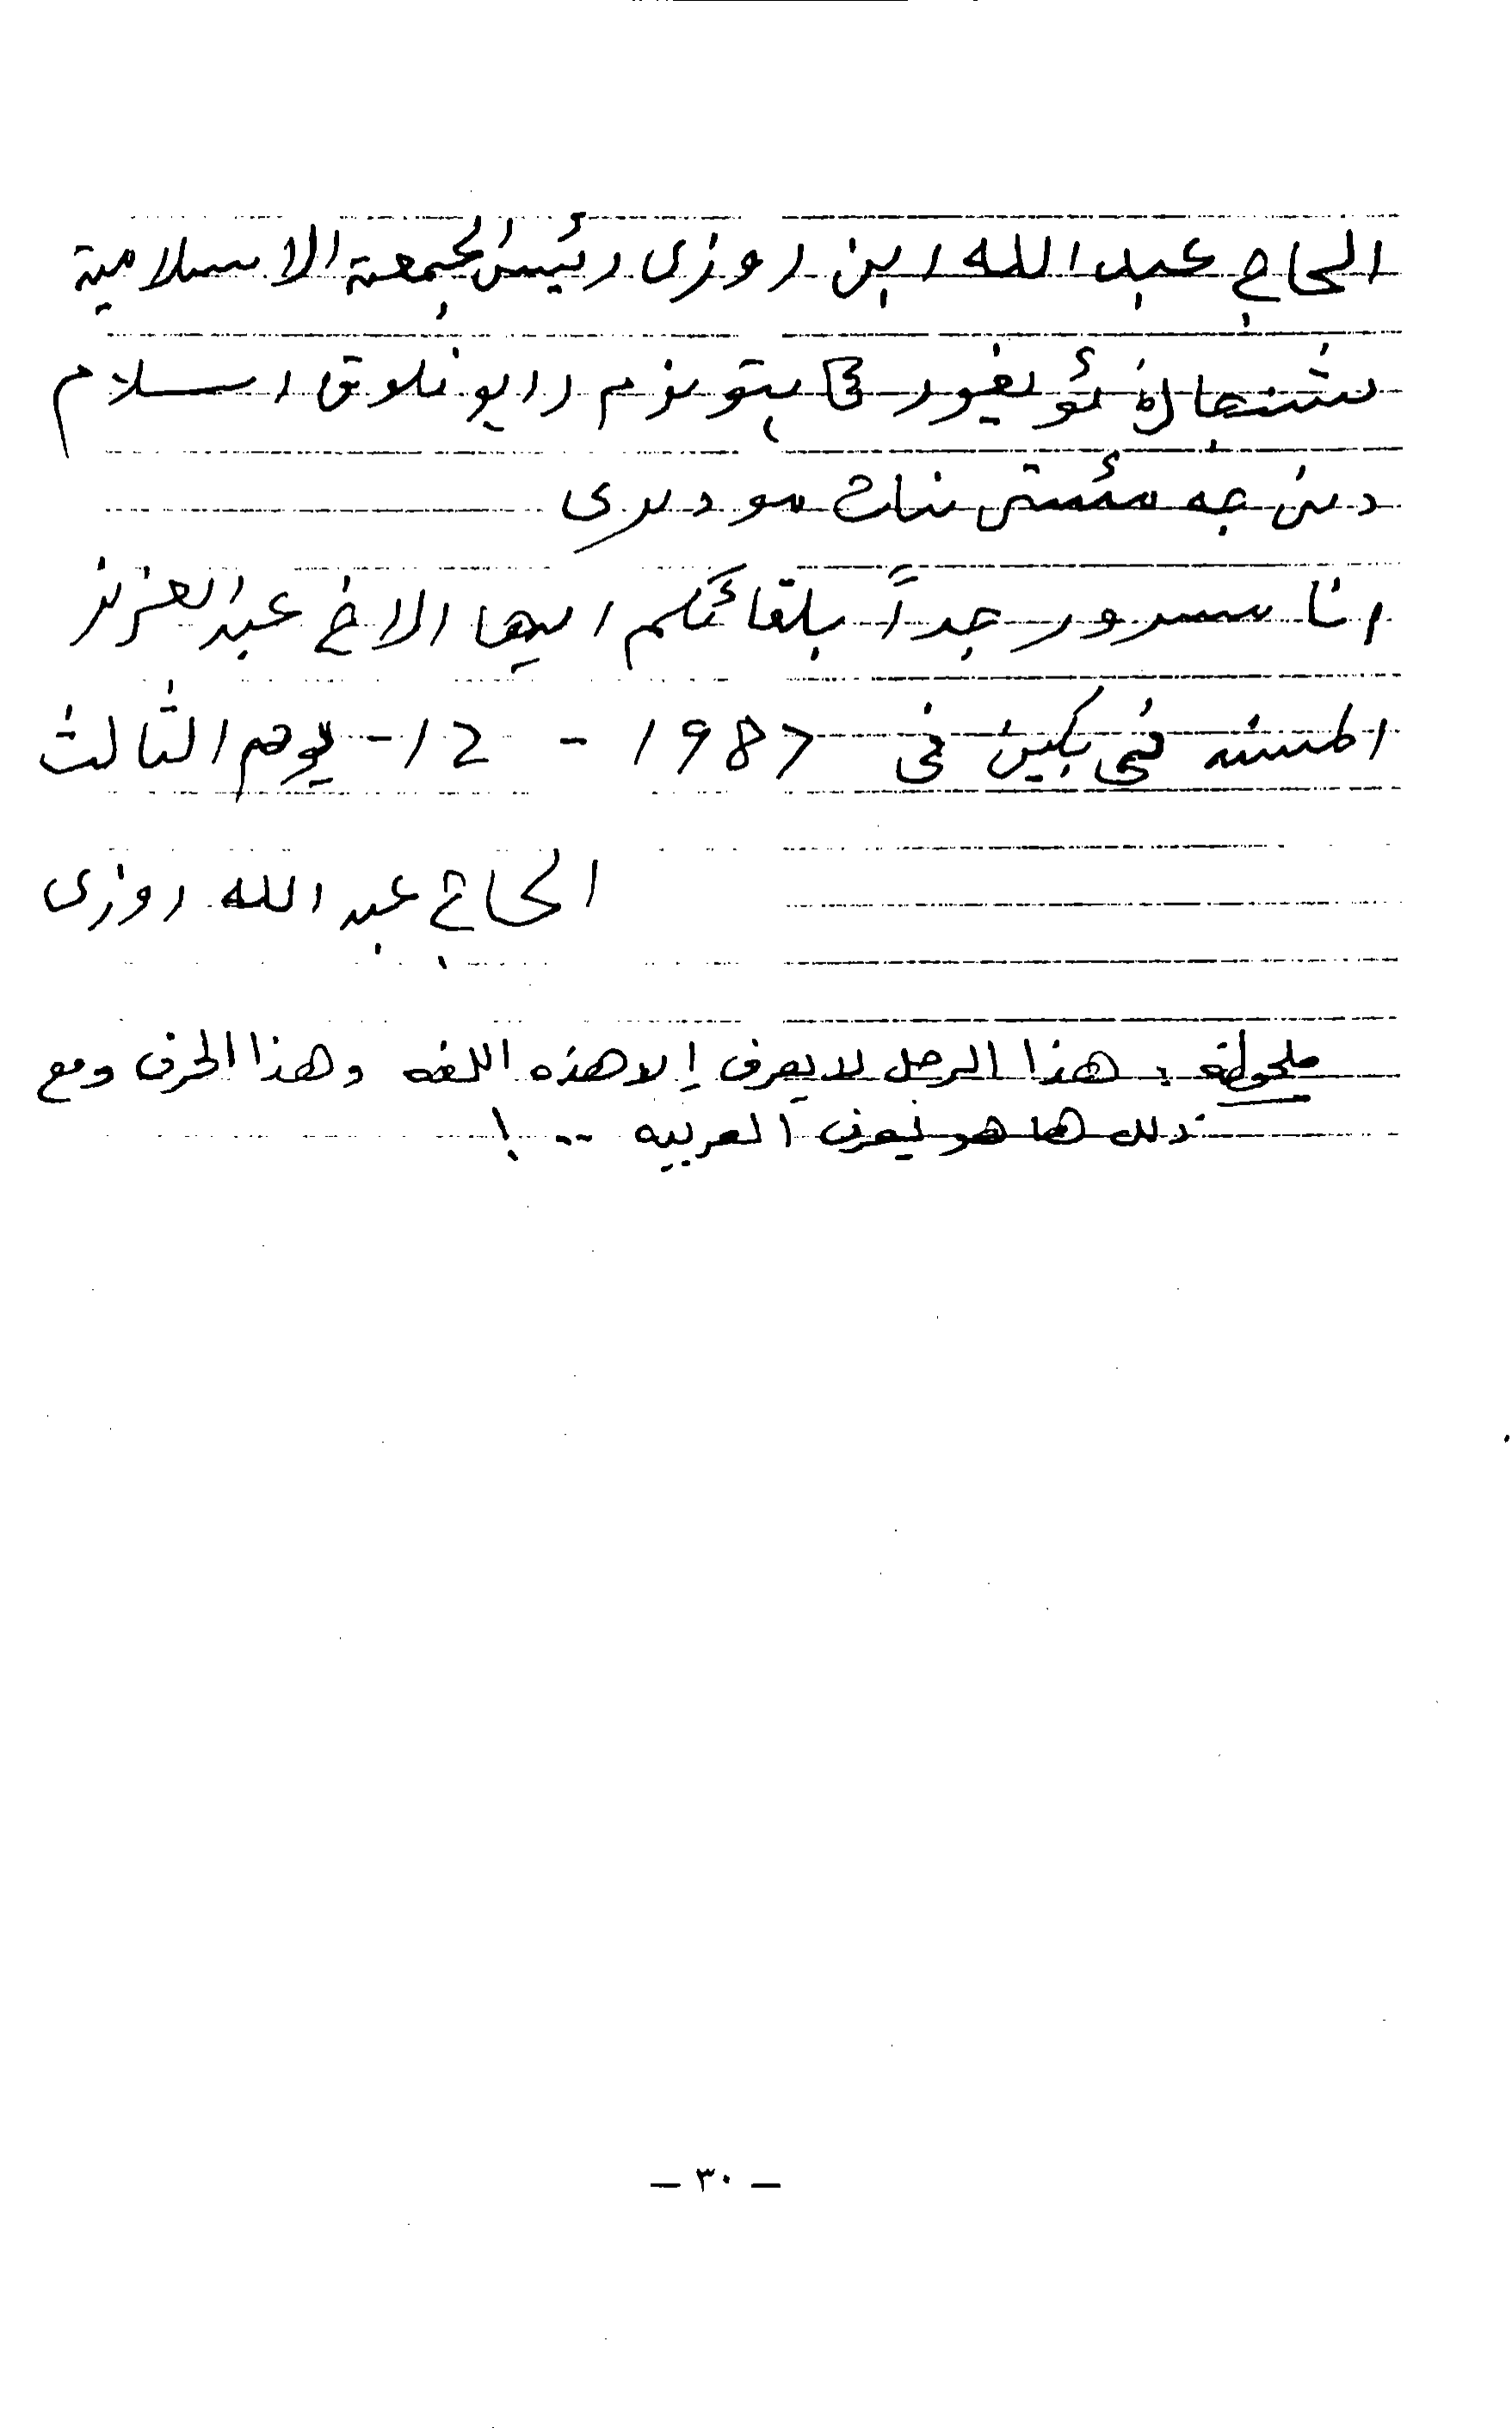 الحاج عبد الله ابن روزى رئيس الجمعة الاسلامية
شنجاڭ ئويغور ئاپتونوم رايونلوق اسلام
دىنى جەمئىيتى
انا مسرور جداً بلقائكم ايها الاخ عبد العزيز
المسند فى بكين فى 1987 - 12 - يوم الثالث
الحاج عبد الله روزى
ملحوظة : هذا الرجل لا يعرف إلا هذه اللغه وهذا الحرف ومع
ذلك ها هو يعرف العربيه .. !
— ٣٠ —